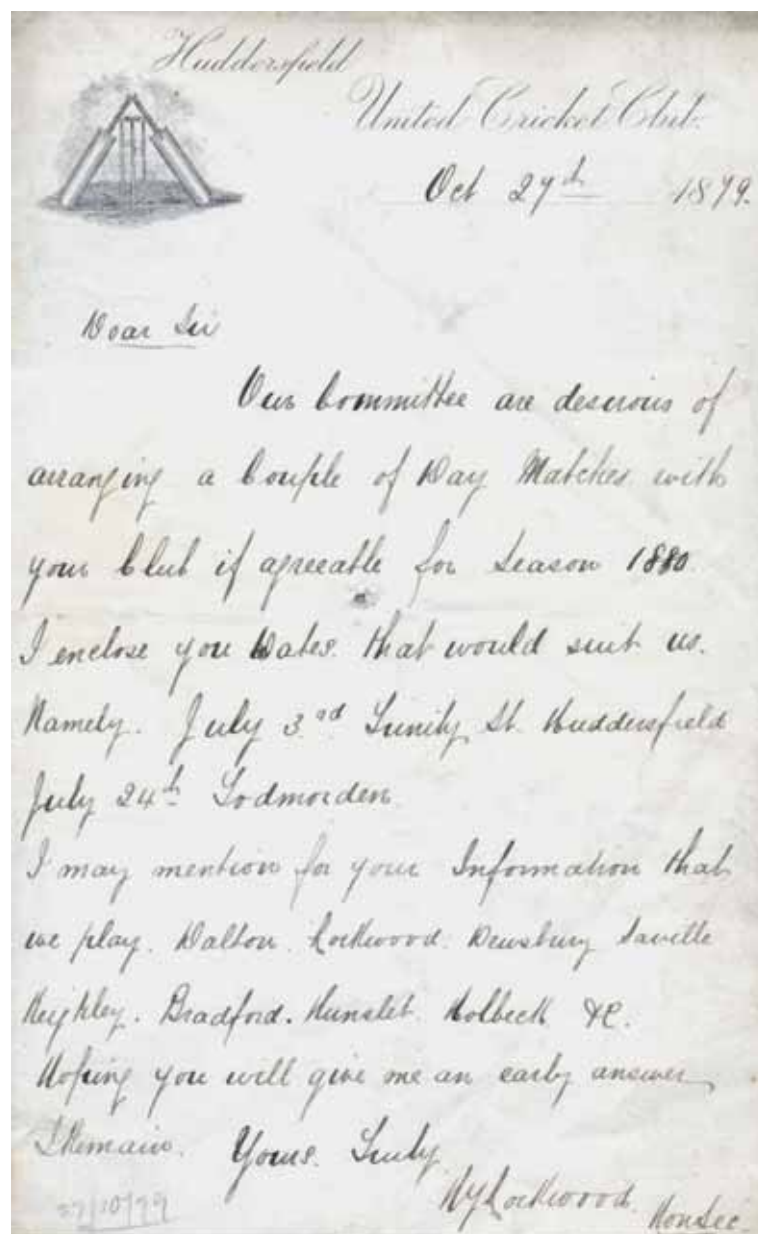 Huddersfield
United Cricket Club.
Oct 27th 1879.
Dear Sir
Our Committee are desirous of
arranging a Couple of Day Matches with
your Club if agreeable for Season 1880.
I enclose you Dates that would suit us.
Namely. July 3rd Trinity St. Huddersfield
July 24th Todmorden
I may mention for your Information that
we play. Dalton. Lockwood. Dewsbury Saville
Keighley. Bradford. Hunslet. Holbeck &C.
Hoping you will give me an early answer
I Remain. Yours. Truly
Lockwood. Hon Sec.
27/10/79